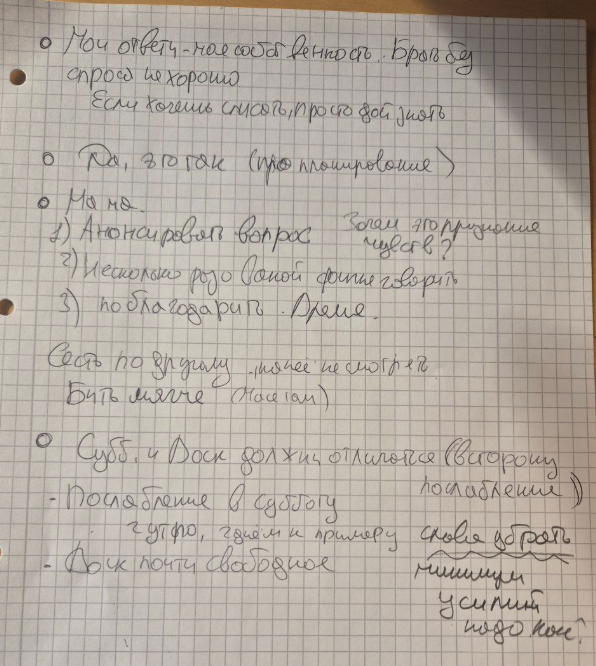 Мои ответы - моя собственность. Брать без
спроса не хорошо
Если хочешь списать, просто дай знать
Да, это так (про планирование)
Мама.
1) Анонсировать вопрос
Зачем это признание
чувств?
2) Несколько раз одной говорить
3) поблагодарить. Время.
Сесть по другому, не смотреть
Быть мягче (
Субб. и Воск должны отличаться (в сторону
послабления)
- Послабление в субботу
2 утро, 2 днём к примеру
снова убрать
- Воск почти свободное
минимум
усилий
надо